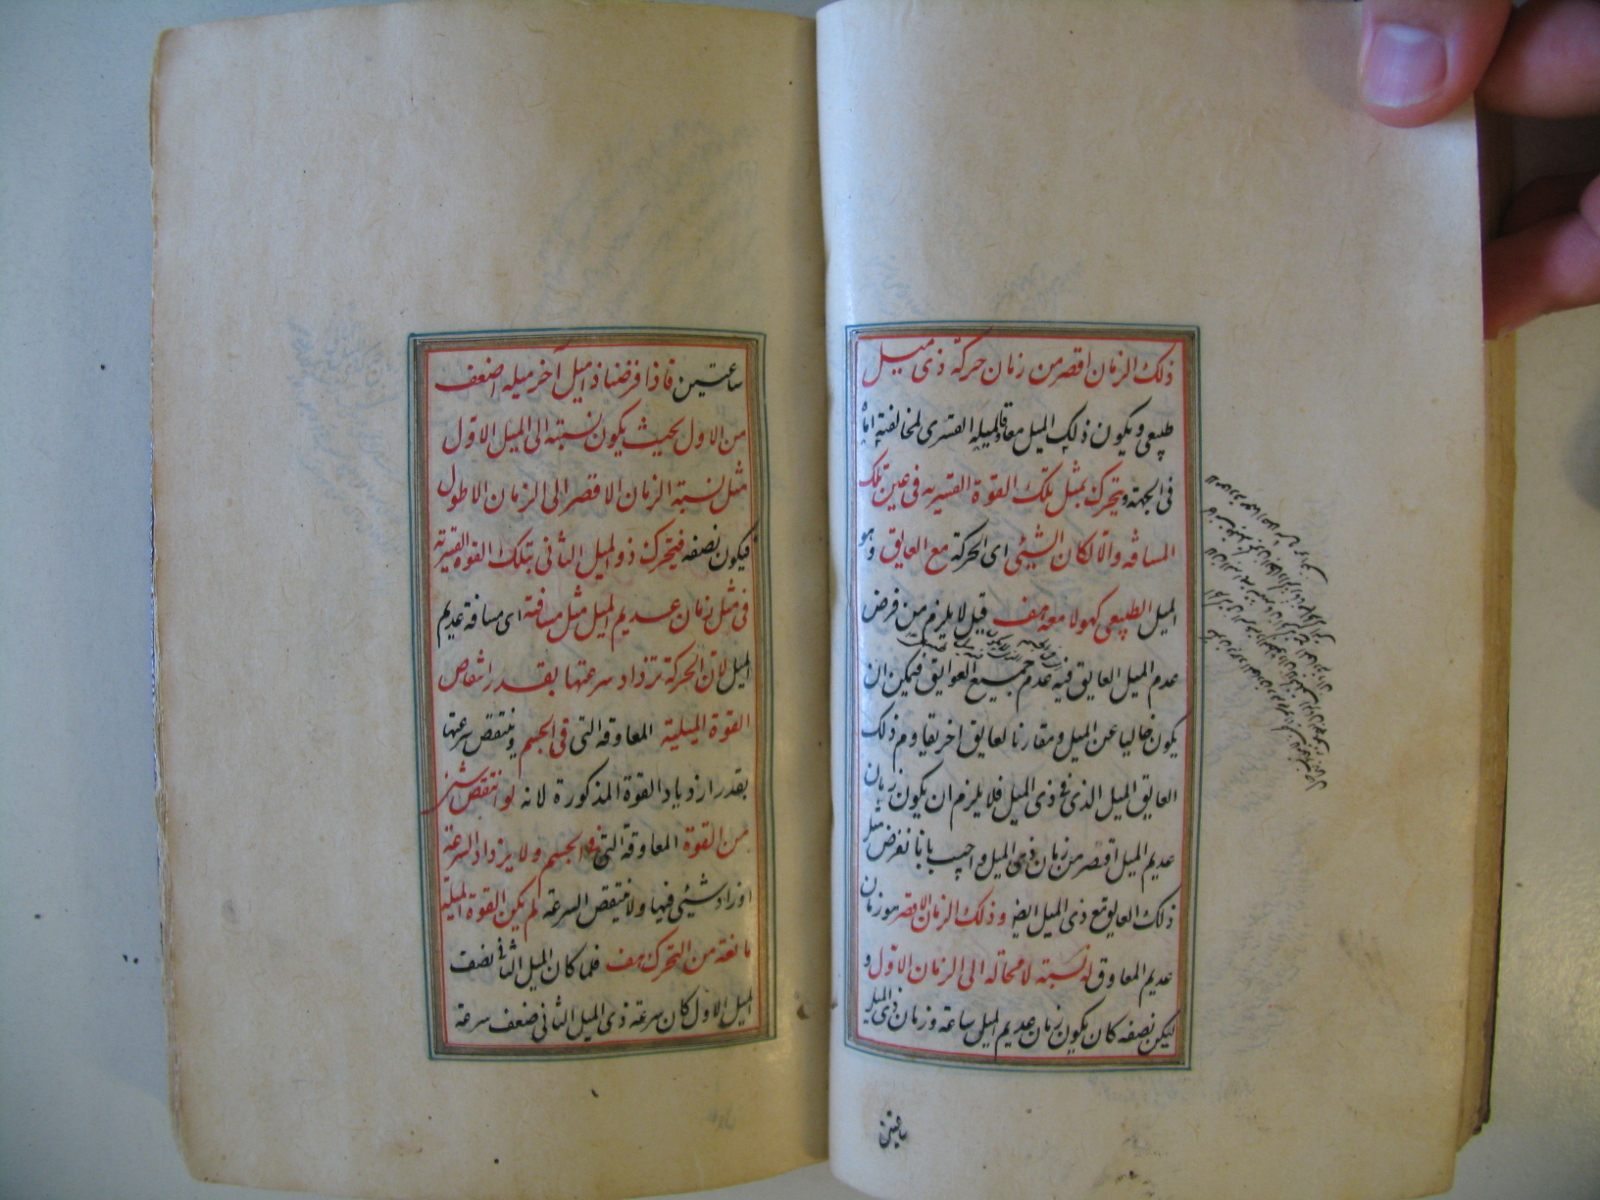 ذلك الزمان اقصر من زمان حركة ذى ميل
طبيعى ويكون ذلك الميل معاوقا لميله القسرى لمخالفته اياه
فى الجهة ويتحرك بمثل تلك القوة القسريه فى عين تلك
المسافه والا لكان الشيئ اى الحركة مع العايق وهو
الميل الطبيعى كهو لا معه هف قيل لا يلزم من فرض
عدم الميل العايق فيه عدم جميع العوايق فيمكن ان
يكون خاليا عن الميل ومقارنا لعايق اخر يقاوم ذلك
العايق الميل الذى فى ذى الميل فلا يلزم ان يكون زمان
عديم الميل اقصر من زمان ذى الميل واجيب بانا نفرض مثل
ذلك العايق مع ذى الميل ايضا وذلك الزمان الاقصر هو زمان
عديم المعاوق له نسبته لا محالة الى الزمان الاول و
ليكن نصفه كان يكون زمان عديم الميل ساعة وزمان ذى الميل
ساعتين
ساعتين فاذا فرضنا ذا ميل آخر ميله اضعف
من الاول بحيث يكون نسبته الى الميل الاول
مثل نسبة الزمان الاقصر الى الزمان الاطول
فيكون نصفه فيتحرك ذو الميل الثانى بتلك القوة القسرية
فى مثل زمان عديم الميل مثل مسافته اى مسافة عديم
الميل لان الحركة تزداد سرعتها بقدر انتقاص
القوة الميلية المعاوقه التى فى الجسم وينتقص سرعتها
بقدر ازدياد القوة المذكورة لانه لو انتقص شئ
من القوة المعاوقة التى فى الجسم ولا يزداد السرعة
او زاد شيئ فيها ولا ينتقص السرعة لم يكن القوة الميلية
مانعة من التحرك هف فلما كان الميل الثانى نصف
الميل الاول كان سرعة ذى الميل الثانى ضعف سرعة